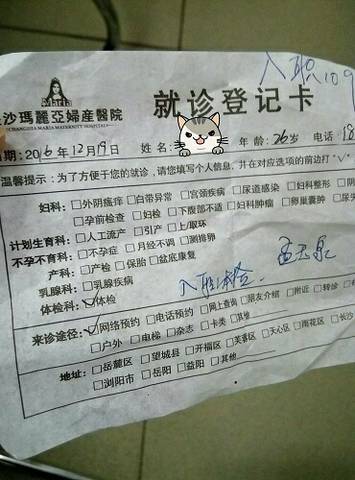 入职109
Maria
长沙瑪麗亞婦産醫院
CHANGSHA MARIA MATERNITY HOSPITAL
就诊登记卡
日期：2016年12月19日 姓名： 年龄：26岁 电话：18
温馨提示：为了方便于您的就诊，请您填写个人信息，并在对应选项的前边打"√"
妇科：□外阴瘙痒 □白带异常 □宫颈疾病 □尿道感染 □妇科整形 □阴
□孕前检查 □妇检 □下腹部不适 □妇科肿瘤 □卵巢囊肿 □尿失
计划生育科：□人工流产 □引产 □上/取环
不孕不育科：□不孕症 □月经不调 □测排卵
产科：□产检 □保胎 □盆底康复
乳腺科：□乳腺疾病
体检科：☑体检
入职体检
来诊途径：☑网络预约 □电话预约 □网上查询 □朋友介绍 □附近 □转诊
□户外 □电梯 □杂志 □卡类 □其他
地址：□岳麓区 □望城县 □开福区 □芙蓉区 □天心区 □雨花区 □长沙
□浏阳市 □岳阳 □益阳 □其他